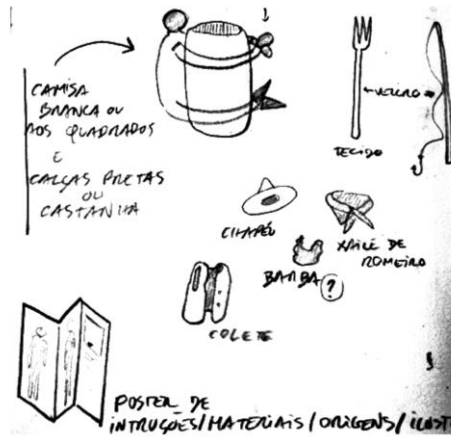 CAMISA
BRANCA OU
AOS QUADRADOS
E
CALÇAS PRETAS
OU
CASTANHA
TECIDO
CHAPÉU
XAILE DE
ROMEIRO
BARBA ?
COLETE
POSTER DE
INTRUÇÕES/MATERIAIS/ORIGENS/ILUST